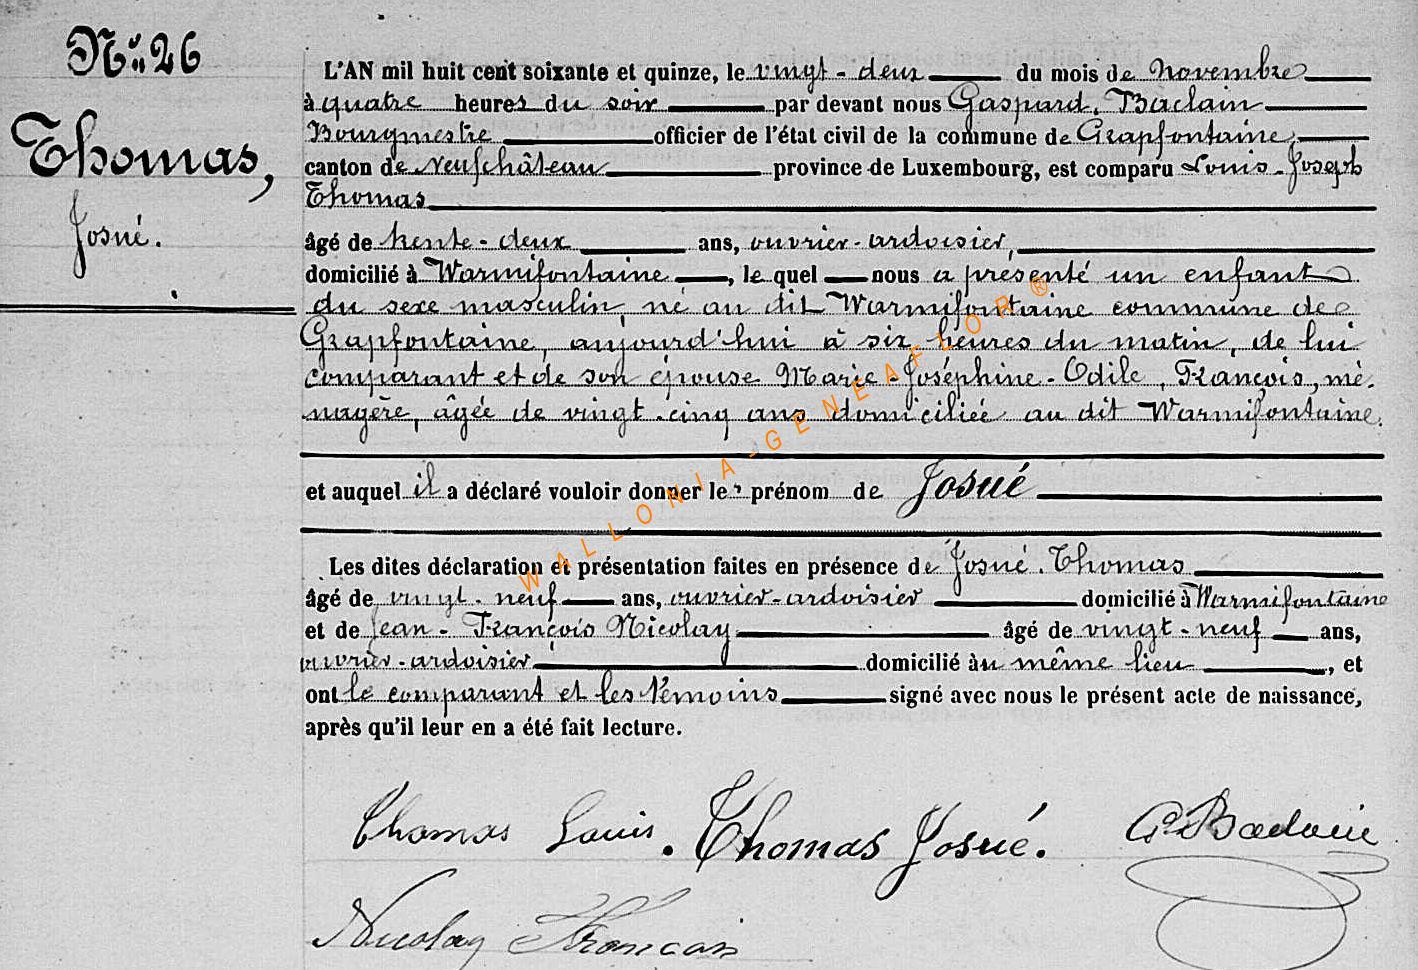 N° 26
Thomas,
Josué.
L'AN mil huit cent soixante et quinze, le vingt-deux du mois de Novembre
à quatre heures du soir par devant nous Gaspard, Baclain
Bourgmestre officier de l'état civil de la commune de Grapfontaine,
canton de Neufchâteau province de Luxembourg, est comparu Louis-Joseph
Thomas
âgé de trente-deux ans, ouvrier-ardoisier,
domicilié à Warmifontaine, le quel nous a présenté un enfant
du sexe masculin, né au dit Warmifontaine commune de
Grapfontaine, aujourd'hui à six heures du matin, de lui
comparant et de son épouse Marie-Joséphine-Odile, François, mé-
nagère, âgée de vingt-cinq ans domiciliée au dit Warmifontaine.
et auquel il a déclaré vouloir donner le prénom de Josué
Les dites déclaration et présentation faites en présence de Josué Thomas
âgé de vingt-neuf ans, ouvrier-ardoisier domicilié à Warmifontaine
et de Jean-François Nicolay âgé de vingt-neuf ans,
ouvrier-ardoisier domicilié au même lieu, et
ont le comparant et les témoins signé avec nous le présent acte de naissance,
après qu'il leur en a été fait lecture.
Thomas Louis. Thomas Josué. G Baclain
Nicolay François
WALLONIA-GENEAFLOR ®